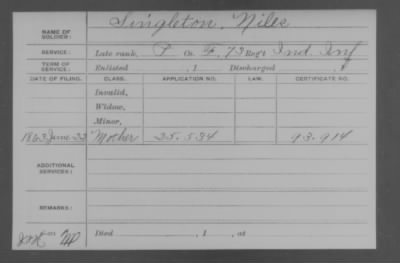 NAME OF SOLDIER: Singleton, Niles
SERVICE: Late rank, P Co. F, 73 Reg't Ind. Inf
TERM OF SERVICE: Enlisted , 1 Discharged , 1
DATE OF FILING. CLASS. APPLICATION NO. LAW. CERTIFICATE NO.
Invalid,
Widow,
Minor,
1863 June 22 Mother 25.534 93.914
ADDITIONAL SERVICES:
REMARKS:
Died , 1 , at